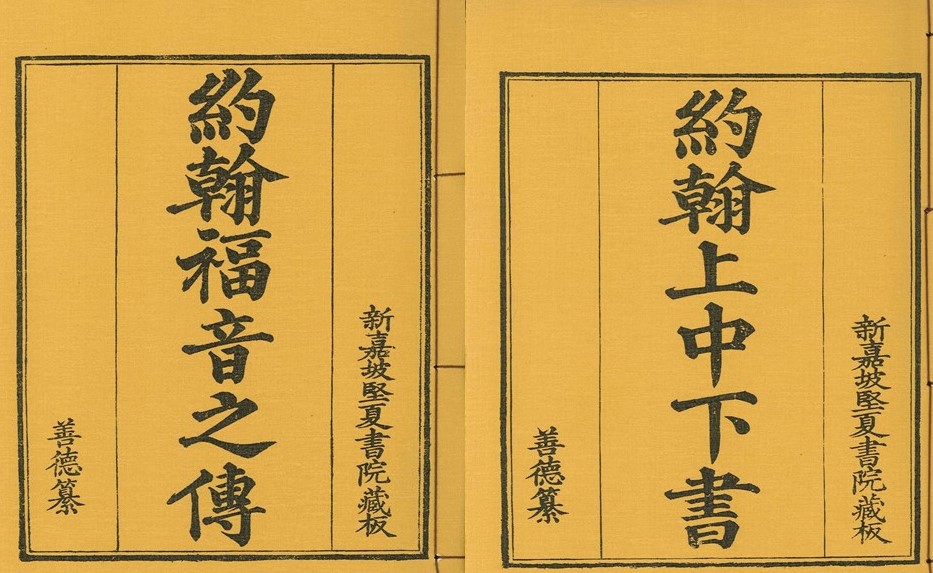 新嘉坡堅夏書院藏板
約翰福音之傳
善德纂
新嘉坡堅夏書院藏板
約翰上中下書
善德纂